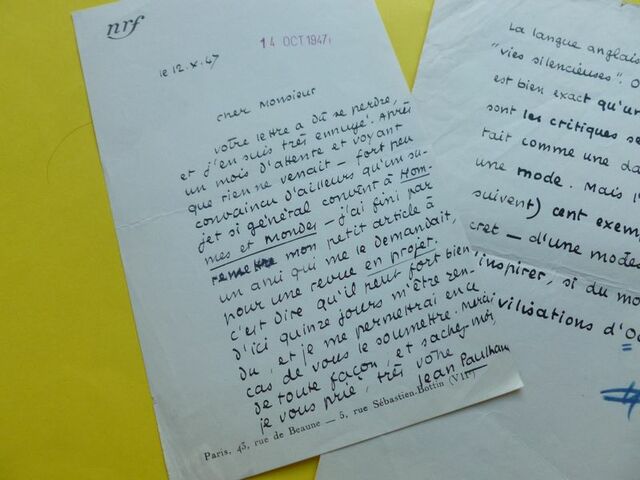 nrf
14 OCT 1947
le 12.X.47
cher Monsieur
votre lettre a dû se perdre,
et j'en suis très ennuyé. Après
un mois d'attente et voyant
que rien ne venait — fort peu
convaincu d'ailleurs qu'un su-
jet si général convînt à Hom-
mes et Mondes — j'ai fini par
remettre mon petit article à
un ami qui me le demandait,
pour une revue en projet.
c'est dire qu'il peut fort bien
d'ici quinze jours m'être ren-
du, et je me permettrai en ce
cas de vous le soumettre. Merci
de toute façon, et sachez-moi,
je vous prie, très vôtre
Jean Paulhan
Paris, 43, rue de Beaune — 5, rue Sébastien-Bottin (VIIe)
La langue anglais
"vies silencieuses". O
est bien exact qu'un
sont les critiques se
tait comme une da
une mode. Mais l'
suivent) cent exem
cret — d'une modes
inspirer, si du mo
vilisations d'O